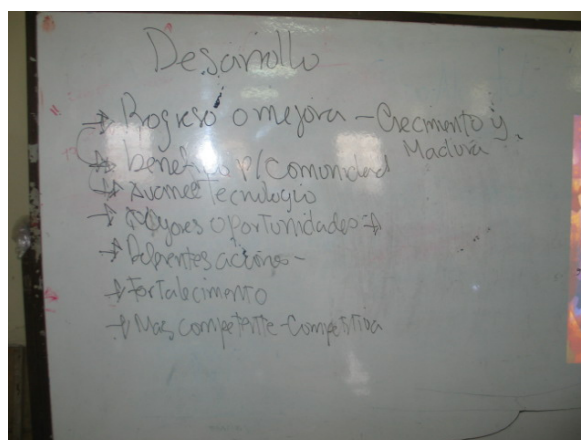 Desarrollo
→ Progreso o mejora - Crecimiento y
Madura
→ beneficio p/ Comunidad
→ Avance Tecnologio
→ Mayores oportunidades →
→ Diferentes acciones -
→ Fortalecimento
→ Mas competente - Competitiva